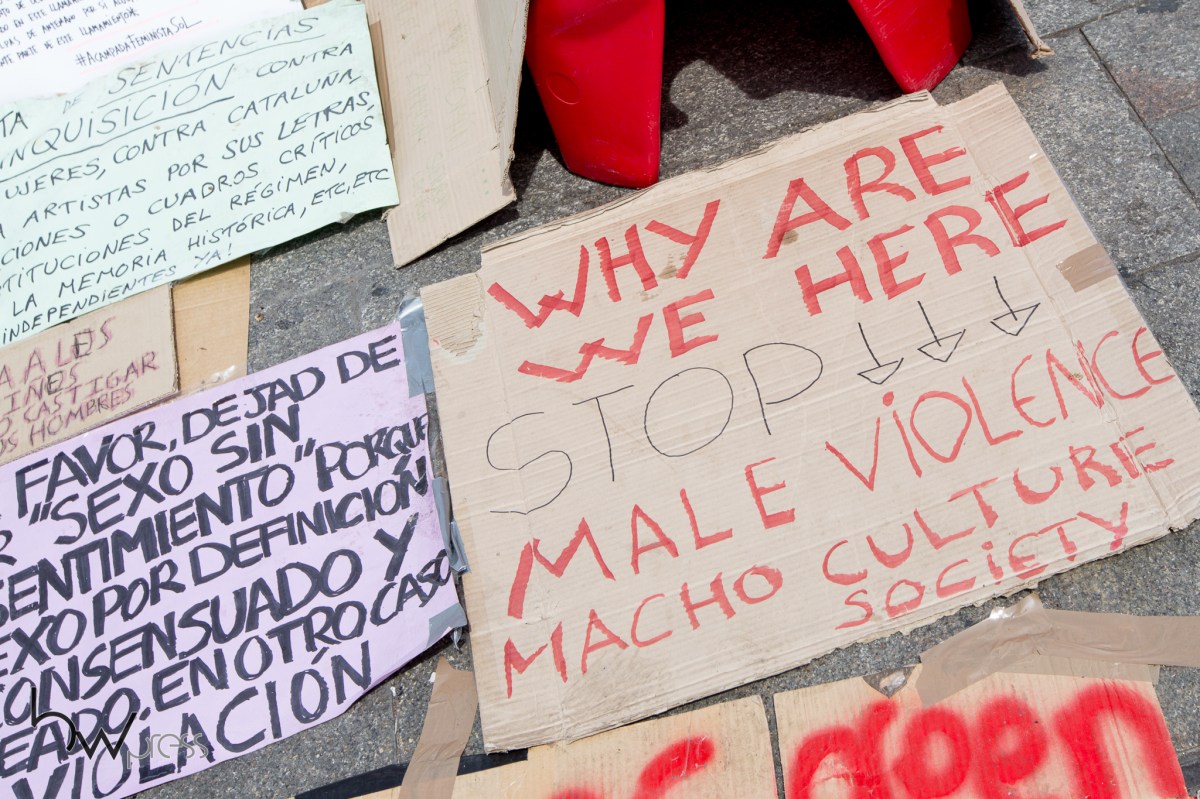 EN ESTE LLAMAMIENTO
#ACAMPADAFEMINISTASOL
DE SENTENCIAS
INQUISICIÓN CONTRA
UJERES, CONTRA CATALUNA,
ARTISTAS POR SUS LETRAS,
CIONES O CUADROS CRÍTICOS
STITUCIONES DEL RÉGIMEN,
LA MEMORIA HISTÓRICA, ETC, ETC
INDEPENDIENTES YA!
A A LOS
INES
CASTIGAR
OS HOMBRES
FAVOR, DEJAD DE
"SEXO SIN
SENTIMIENTO" PORQUE
EXO POR DEFINICIÓN
CONSENSUADO Y
EADO. EN OTRO CASO
VIOLACIÓN
WHY ARE
WE HERE
STOP
MALE VIOLENCE
MACHO CULTURE
SOCIETY
bw press